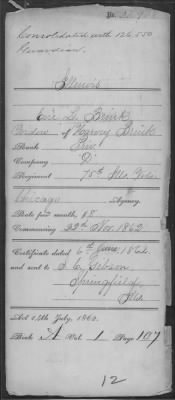 Consolidated with 126,550
Guardian.
Illinois
Brink
Widow of Harvey Brink
Rank Priv.
Company "D"
Regiment 75th Ills Vols.
Chicago Agency
Rate per month $8
Commencing 22nd Nov. 1862
Certificate dated 6th June 1864
and sent to Gibson
Springfield
Ills.
Act 14th July, 1862.
Book A Vol. 1 Page 107
12